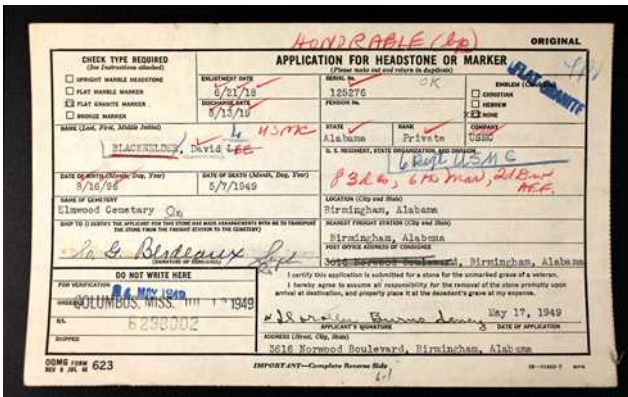 HONORABLE (hp)
ORIGINAL
CHECK TYPE REQUIRED
(See Instructions attached)
UPRIGHT MARBLE HEADSTONE
FLAT MARBLE MARKER
FLAT GRANITE MARKER
BRONZE MARKER
APPLICATION FOR HEADSTONE OR MARKER
(Please make out and return in duplicate)
ENLISTMENT DATE
6/21/18
DISCHARGE DATE
8/13/19
SERIAL No.
OK
125276
PENSION No.
EMBLEM
CHRISTIAN
HEBREW
NONE
FLAT GRANITE
NAME (Last, First, Middle Initial)
L USMC
BLACKWELDER, David LEE
STATE
Alabama
RANK
Private
COMPANY
USMC
U. S. REGIMENT, STATE ORGANIZATION, AND DIVISION
6 Regt USMC
83d Co, 6th Mar, 2d Div
AEF.
DATE OF BIRTH (Month, Day, Year)
9/16/96
DATE OF DEATH (Month, Day, Year)
5/7/1949
NAME OF CEMETERY
Elmwood Cemetary
LOCATION (City and State)
Birmingham, Alabama
SHIP TO (I CERTIFY THE APPLICANT FOR THIS STONE HAS MADE ARRANGEMENTS WITH ME TO TRANSPORT
THE STONE FROM THE FREIGHT STATION TO THE CEMETERY)
NEAREST FREIGHT STATION (City and State)
Birmingham, Alabama
G. Berdeaux Supt
(SIGNATURE OF CONSIGNEE)
POST OFFICE ADDRESS OF CONSIGNEE
3616 Norwood Boulevard, Birmingham, Alabama
DO NOT WRITE HERE
FOR VERIFICATION
24 MAY 1949
ORDERED
COLUMBUS, MISS. 1949
B/L
6298002
SHIPPED
I certify this application is submitted for a stone for the unmarked grave of a veteran.
I hereby agree to assume all responsibility for the removal of the stone promptly upon
arrival at destination, and properly place it at the decedent's grave at my expense.
May 17, 1949
APPLICANT'S SIGNATURE
DATE OF APPLICATION
ADDRESS (Street, City, State)
3616 Norwood Boulevard, Birmingham, Alabama
OQMG FORM 623
IMPORTANT—Complete Reverse Side